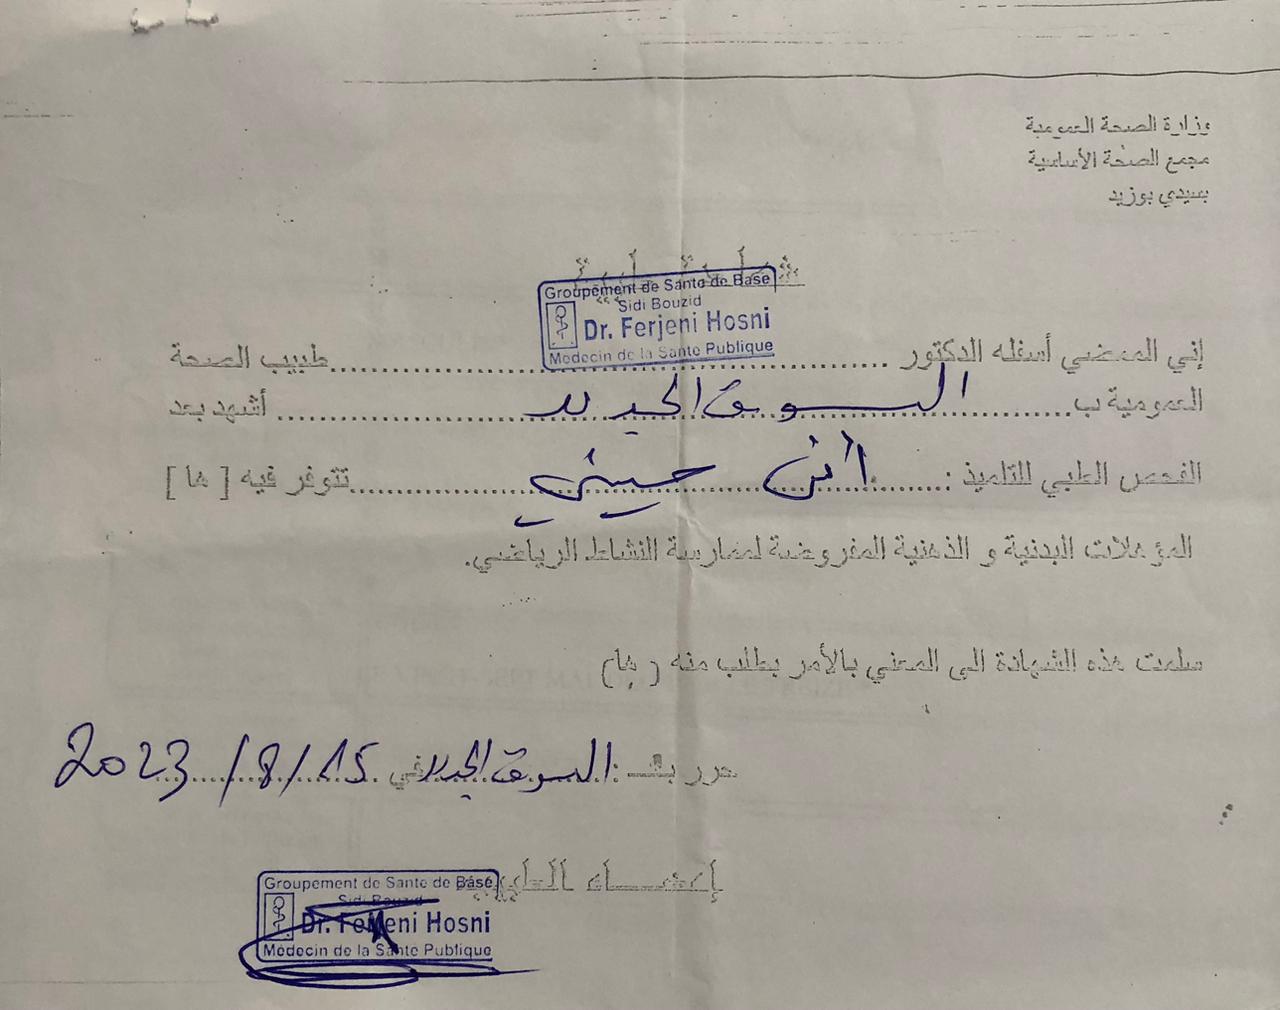 وزارة الصحة العمومية
مجمع الصحة الأساسية
بسيدي بوزيد
شهادة طبية
Groupement de Sante de Base
Sidi Bouzid
Dr. Ferjeni Hosni
Medecin de la Sante Publique
إني الممضي أسفله الدكتور ........................ طبيب الصحة
العمومية ب... السوق الجديد ... أشهد بعد
الفحص الطبي للتلميذ : ... حسني ... تتوفر فيه [ ها ]
المؤهلات البدنية و الذهنية المفروضة لممارسة النشاط الرياضي.
سلمت هذه الشهادة الى المعني بالأمر بطلب منه ( ها )
حرر بـ : السوق الجديد في 15 / 8 / 2023
إمضاء الطبيب
Groupement de Sante de Base
Sidi Bouzid
Dr. Ferjeni Hosni
Medecin de la Sante Publique